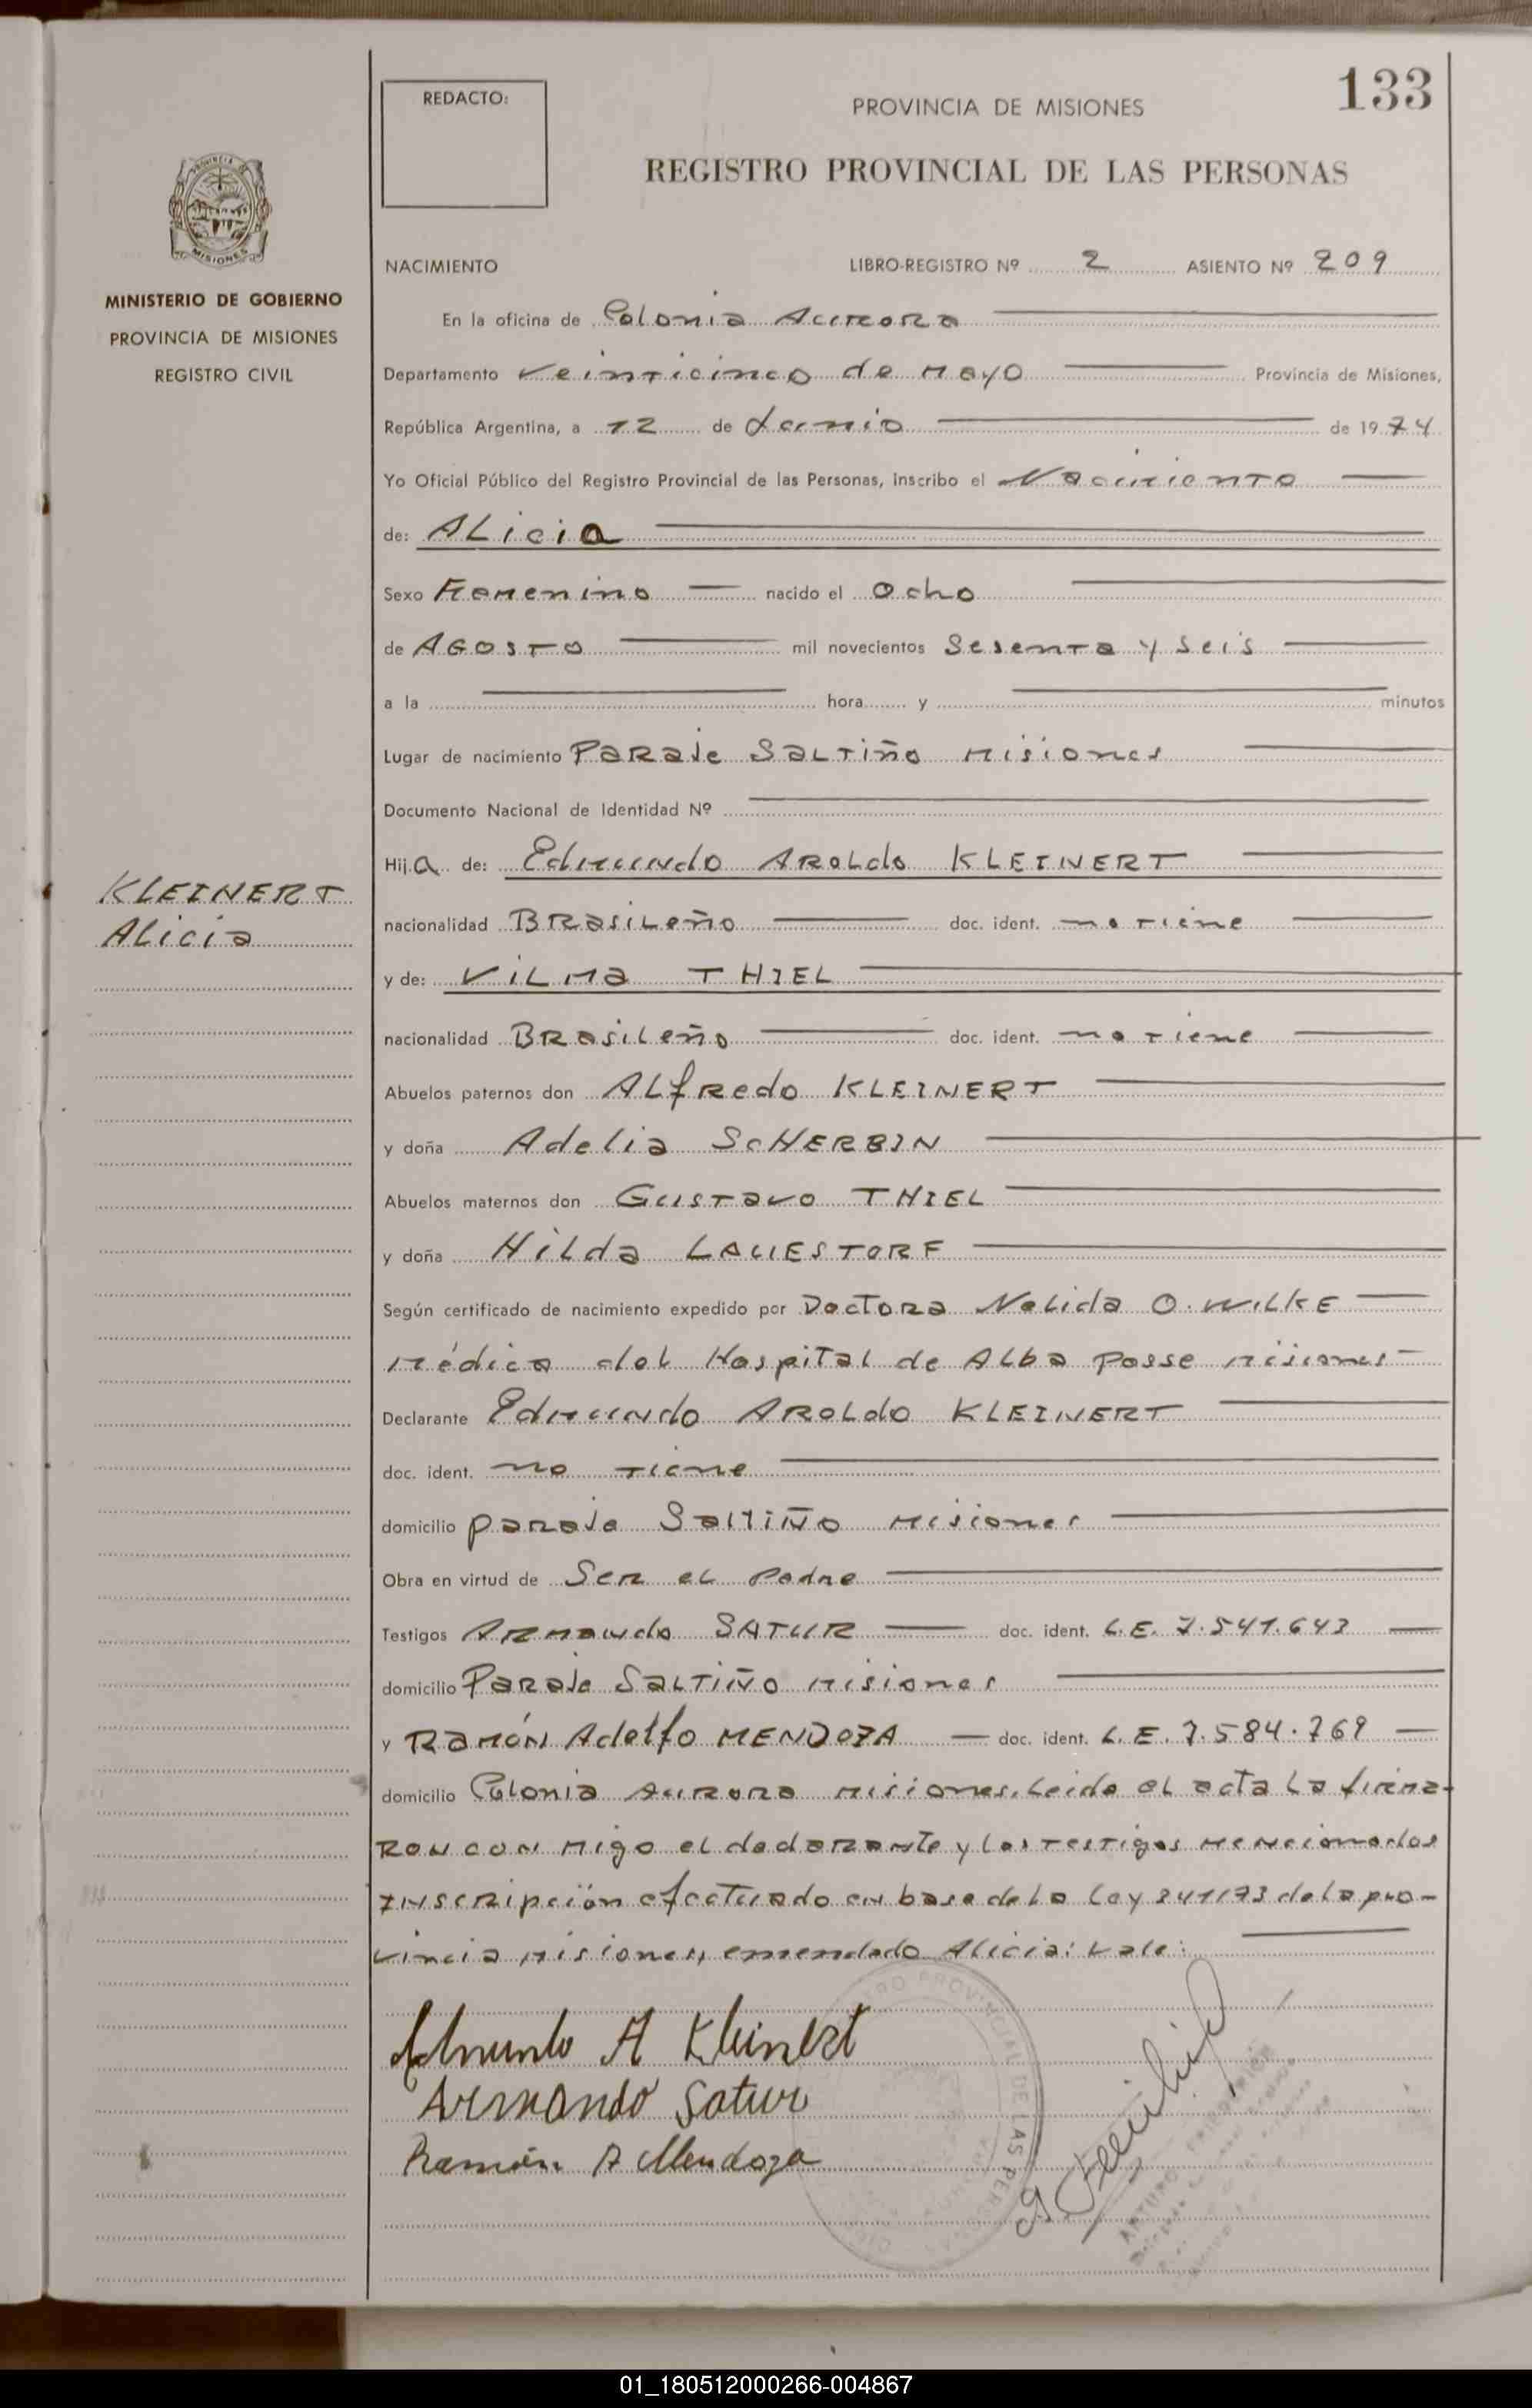 133
REDACTO:
PROVINCIA DE MISIONES
REGISTRO PROVINCIAL DE LAS PERSONAS
PROVINCIA DE
MISIONES
MINISTERIO DE GOBIERNO
PROVINCIA DE MISIONES
REGISTRO CIVIL
NACIMIENTO LIBRO-REGISTRO Nº 2 ASIENTO Nº 209
En la oficina de Colonia Aurora
Departamento Veinticinco de Mayo Provincia de Misiones,
República Argentina, a 12 de Junio de 1974
Yo Oficial Público del Registro Provincial de las Personas, inscribo el Nacimiento
de: ALicia
Sexo Femenino nacido el Ocho
de AGOSTO mil novecientos Sesenta y Seis
a la hora y minutos
Lugar de nacimiento Paraje Saltiño Misiones
Documento Nacional de Identidad Nº
Hija de: Edmundo Aroldo KLEINERT
KLEINERT
Alicia
nacionalidad Brasileño doc. ident. no tiene
y de: Vilma THIEL
nacionalidad Brasileño doc. ident. no tiene
Abuelos paternos don Alfredo KLEINERT
y doña Adelia ScHERBIN
Abuelos maternos don Gustavo THIEL
y doña Hilda LAUESTORF
Según certificado de nacimiento expedido por Doctora Nelida O. WILKE
Médica del Hospital de Alba Posse Misiones
Declarante Edmundo Aroldo KLEINERT
doc. ident. no tiene
domicilio paraje Saltiño Misiones
Obra en virtud de Ser el Padre
Testigos Armando SATUR doc. ident. L.E. 7.541.643
domicilio Paraje Saltiño Misiones
y Ramón Adolfo MENDOZA doc. ident. L.E. 7.584.769
domicilio Colonia Aurora Misiones. Leida el acta la firma-
ron con migo el declarante y los testigos mencionados
Inscripción efectuado en base de la Ley 241/73 de la pro-
vincia Misiones, emendado Alicia: Vale:
Edmundo A Kleinert
Armando Satur
Ramón A Mendoza
PROVINCIAL DE LAS PERSONAS
ARTURO
01_180512000266-004867